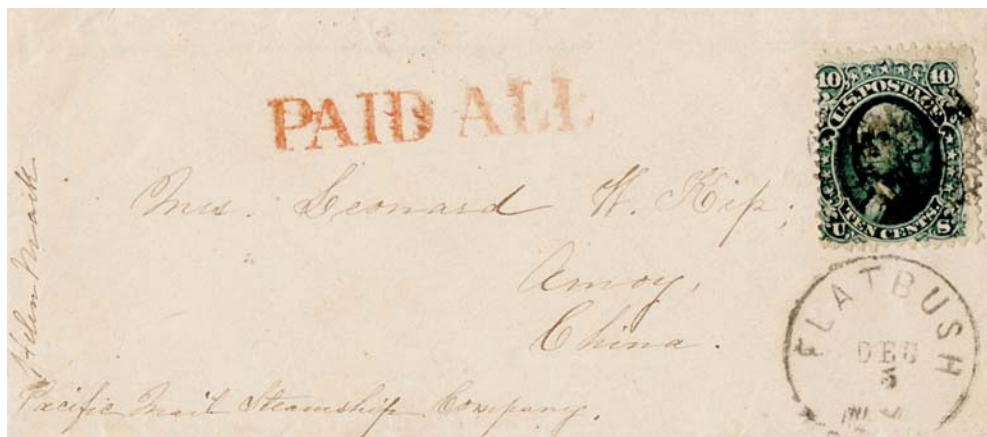 PAID ALL
10 10
U.S. POSTAGE
TEN CENTS.
U S
Mrs. Leonard W. Kip,
Amoy,
China.
Pacific Mail Steamship Company.
Helen
FLATBUSH
DEC
3